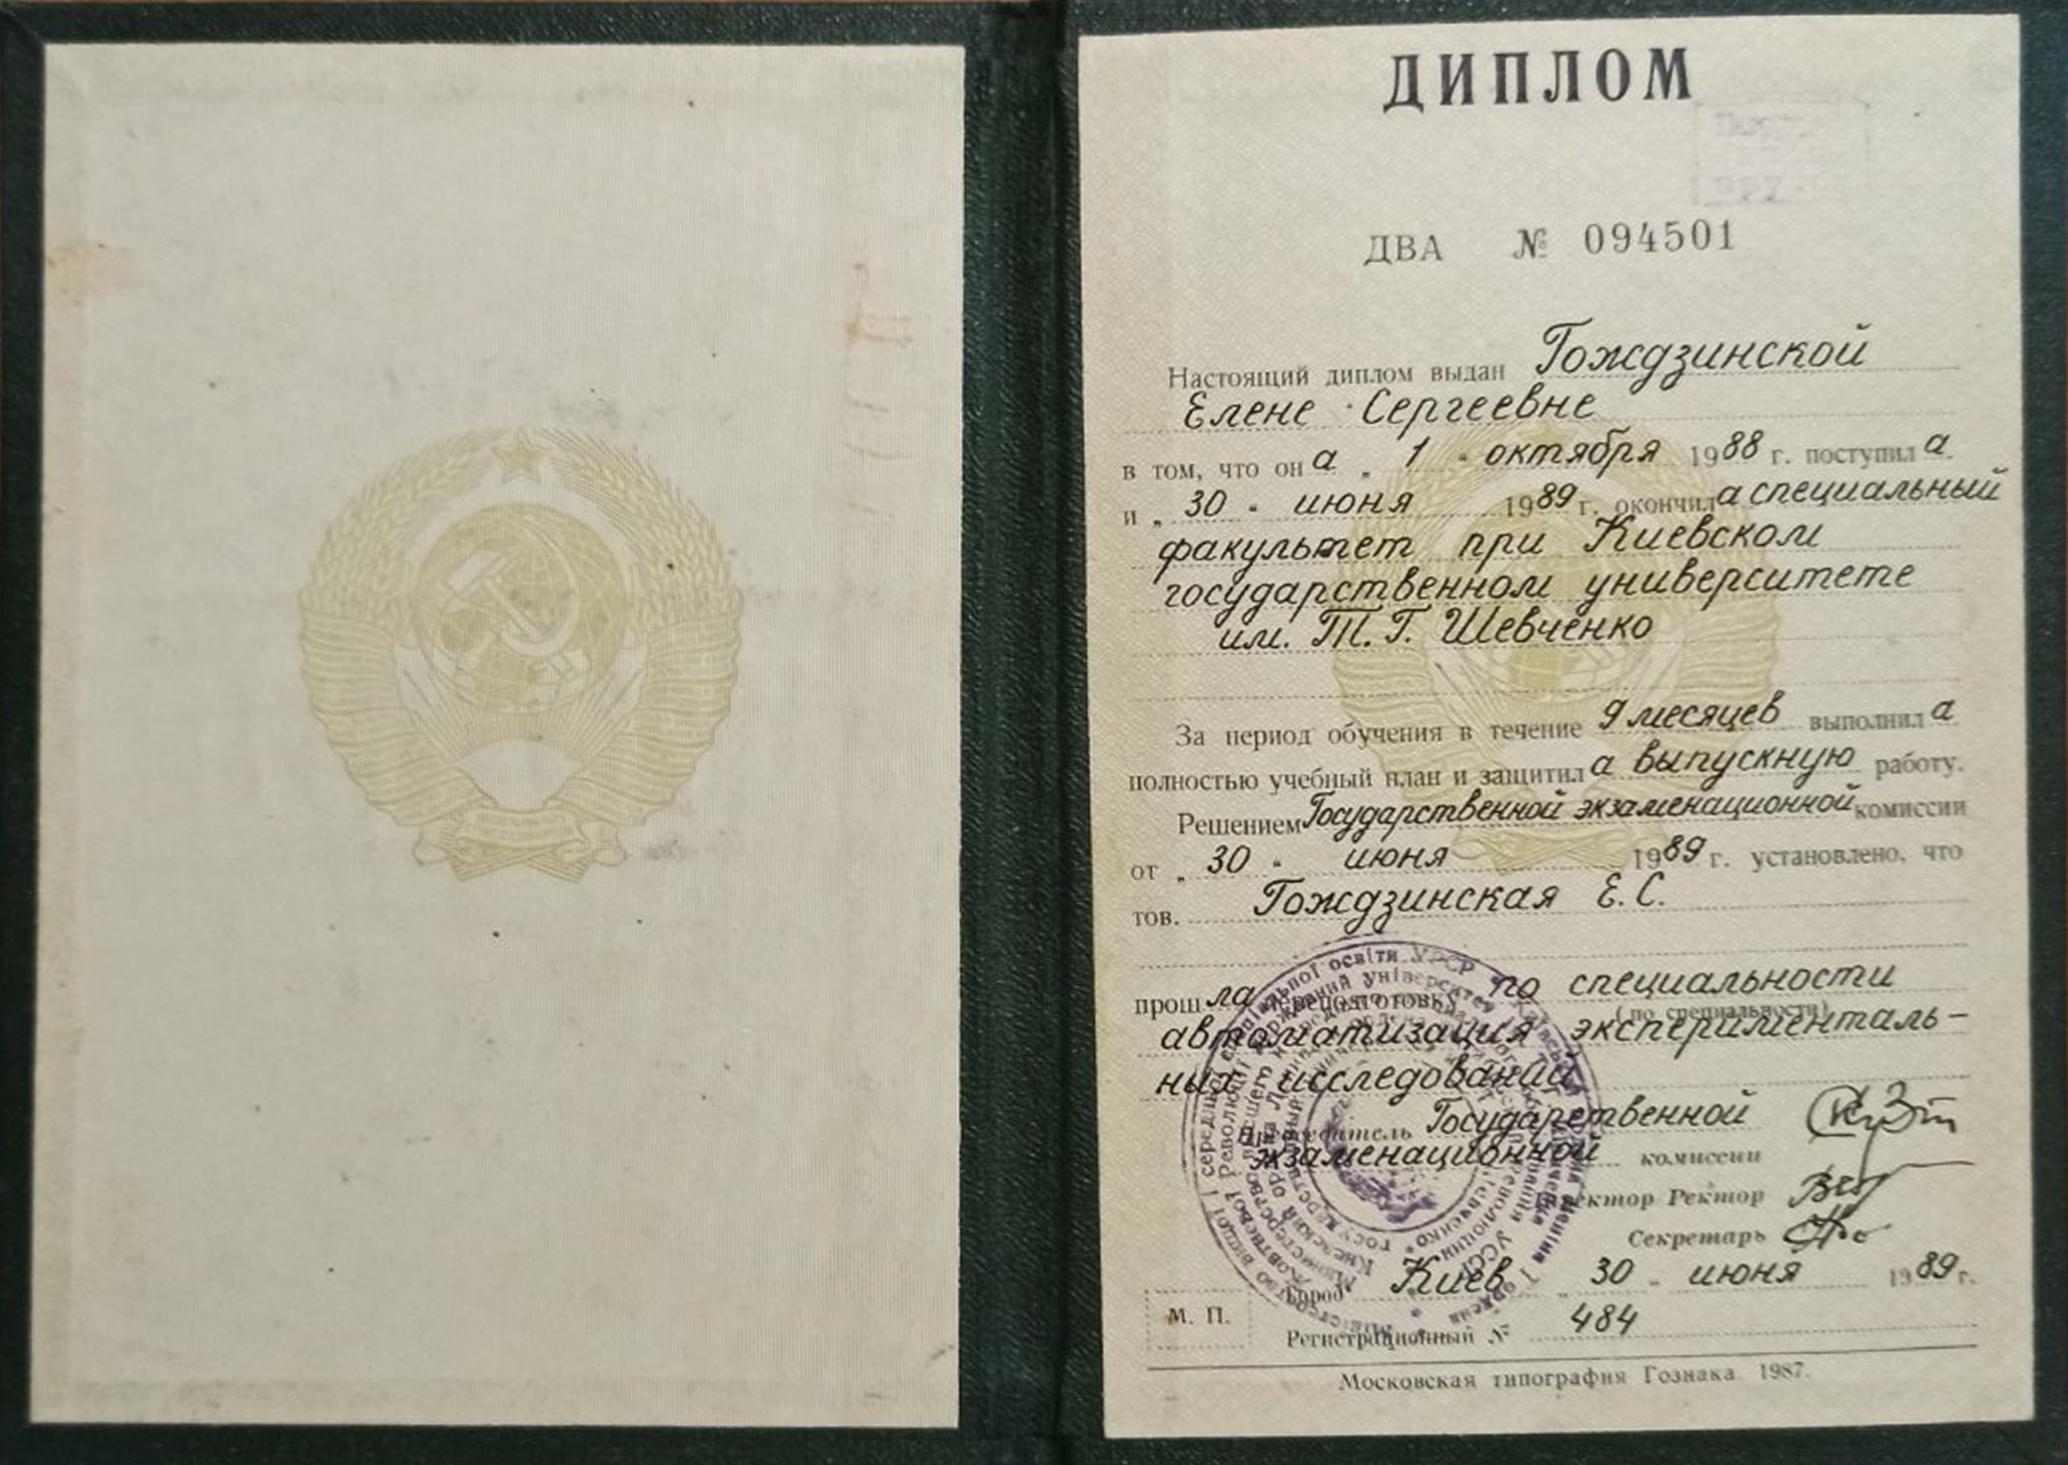 ДИПЛОМ
ДВА № 094501
Настоящий диплом выдан Гождзинской
Елене Сергеевне
в том, что он а „ 1 " октября 1988 г. поступил а
и „ 30 " июня 1989 г. окончил а специальный
факультет при Киевском
государственном университете
им. Т. Г. Шевченко
За период обучения в течение 9 месяцев выполнил а
полностью учебный план и защитил а выпускную работу.
Решением Государственной экзаменационной комиссии
от „ 30 " июня 1989 г. установлено, что
тов. Гождзинская Е. С.
прош ла переподготовку по специальности
(по специальности)
автоматизация эксперименталь-
ных исследований
Председатель Государственной
экзаменационной комиссии
Директор Ректор
Секретарь
Город Киев „ 30 " июня 1989 г.
М. П.
Регистрационный № 484
Московская типография Гознака. 1987.